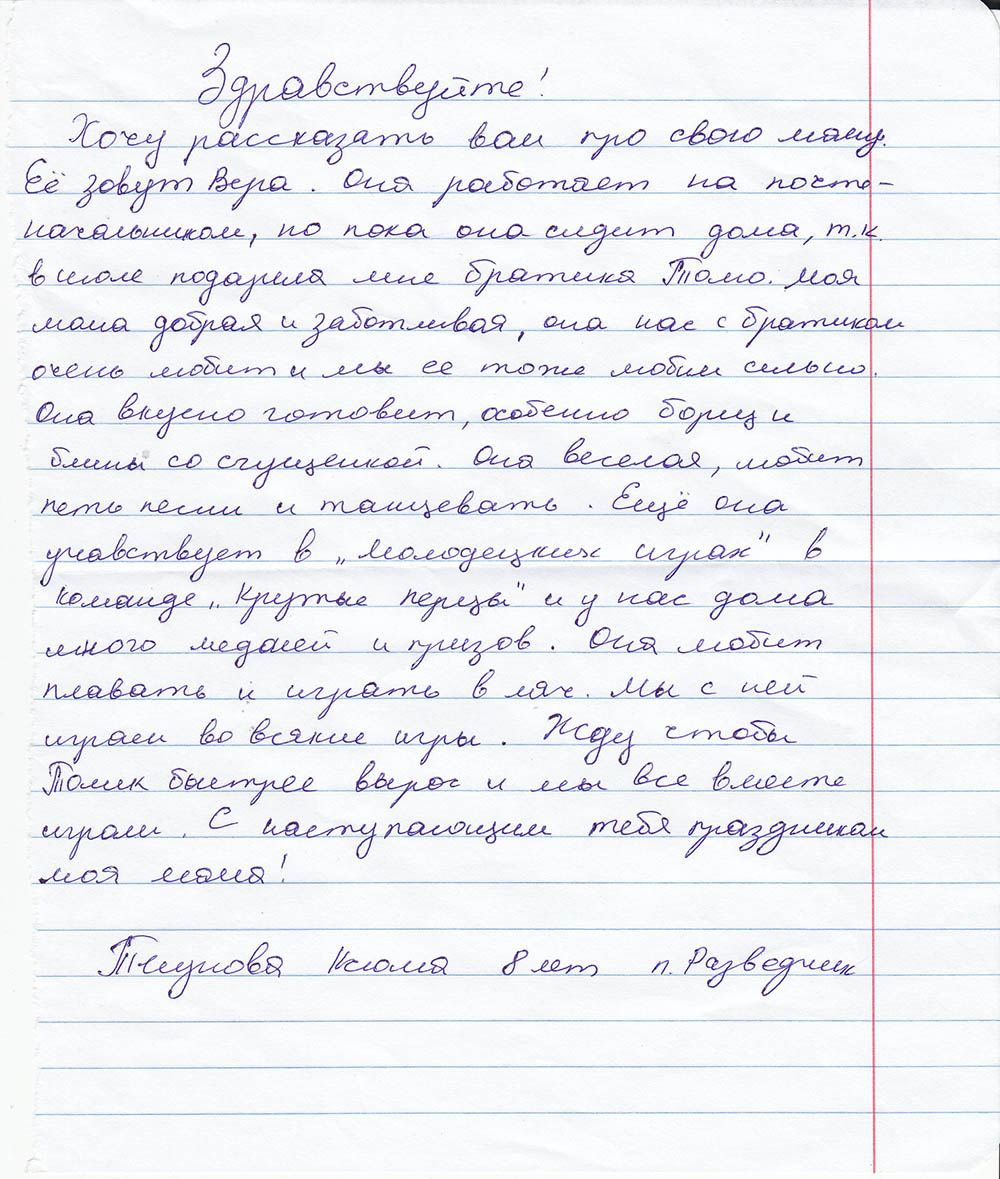 Здравствуйте!
Хочу рассказать вам про свою маму.
Её зовут Вера. Она работает на почте-
начальником, но пока она сидит дома, т.к.
в июле подарила мне братика Тому. Моя
мама добрая и заботливая, она нас с братиком
очень любит и мы ее тоже любим сильно.
Она вкусно готовит, особенно борщ и
блины со сгущенкой. Она веселая, любит
петь песни и танцевать. Ещё она
учавствует в "Молодецких играх" в
команде "Крутые перцы" и у нас дома
много медалей и призов. Она любит
плавать и играть в мяч. Мы с ней
играем во всякие игры. Жду чтобы
Томик быстрее вырос и мы все вместе
играли. С наступающим тебя праздником
моя мама!
Ксюша 8 лет п. Разведчик